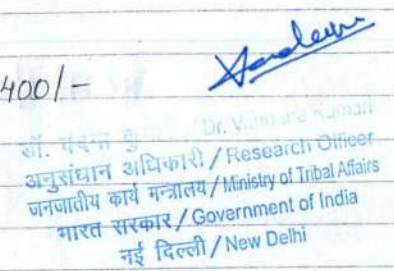 400/-
डॉ. / Dr. Kumari
अनुसंधान अधिकारी / Research Officer
जनजातीय कार्य मन्त्रालय / Ministry of Tribal Affairs
भारत सरकार / Government of India
नई दिल्ली / New Delhi